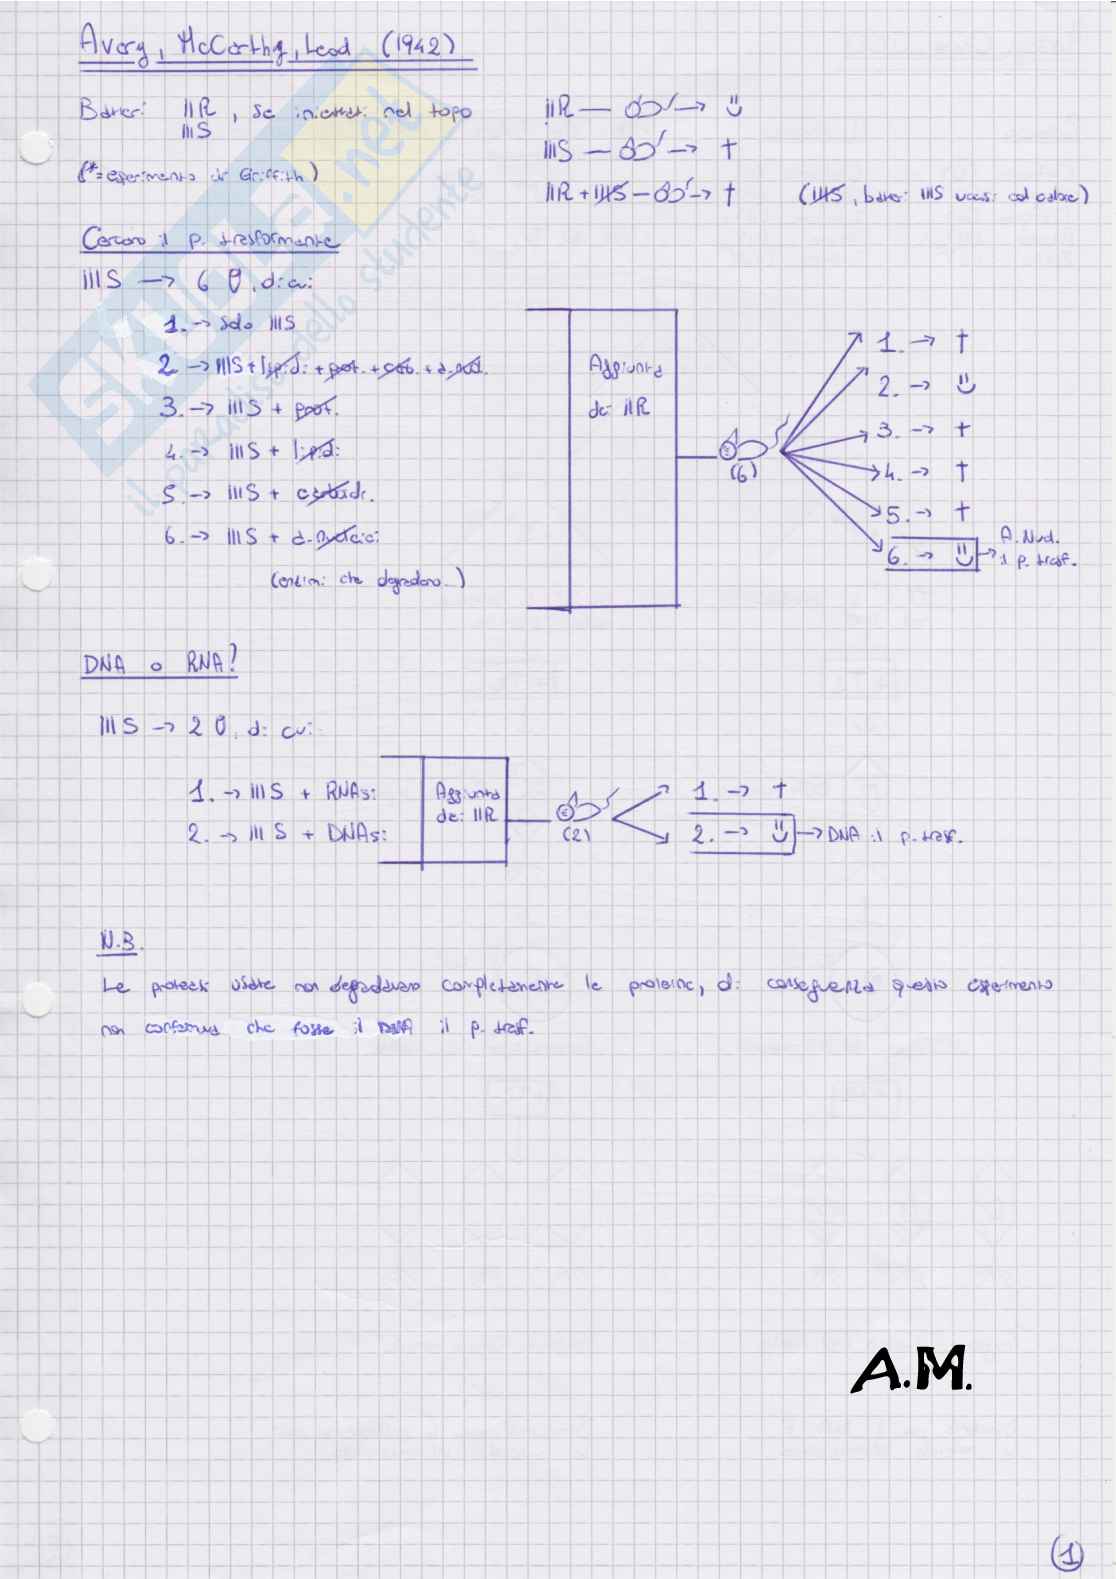 Avery, McCarthy, Leod (1942)
Batteri IIR, se iniettati nel topo
IIIS
(*=esperimento di Griffith)
IIR — → ü
IIIS — → †
IIR + IIIS — → † (IIIS, batteri IIIS uccisi col calore)
Cercano il p. trasformante
IIIS → 6 , di cui:
1. → Solo IIIS
2 → IIIS + lipidi + prot. + carb. + a.nucl.
3. → IIIS + prot.
4. → IIIS + lipidi
5. → IIIS + carboidr.
6. → IIIS + a. nucleici
(enzimi che degradano...)
Aggiunta
dei IIR
(6)
1. → †
2. → ü
3. → †
4. → †
5. → †
6. → ü → A. Nucl.
il p. trasf.
DNA o RNA?
IIIS → 2 , di cui:
1. → IIIS + RNAsi
2. → IIIS + DNAsi
Aggiunta
dei IIR
(2)
1. → †
2. → ü → DNA il p. trasf.
N.B.
Le proteasi usate non degradavano completamente le proteine, di conseguenza questo esperimento
non confermava che fosse il DNA il p. trasf.
A.M.
1
SKUOLA.net
il paradiso dello studente